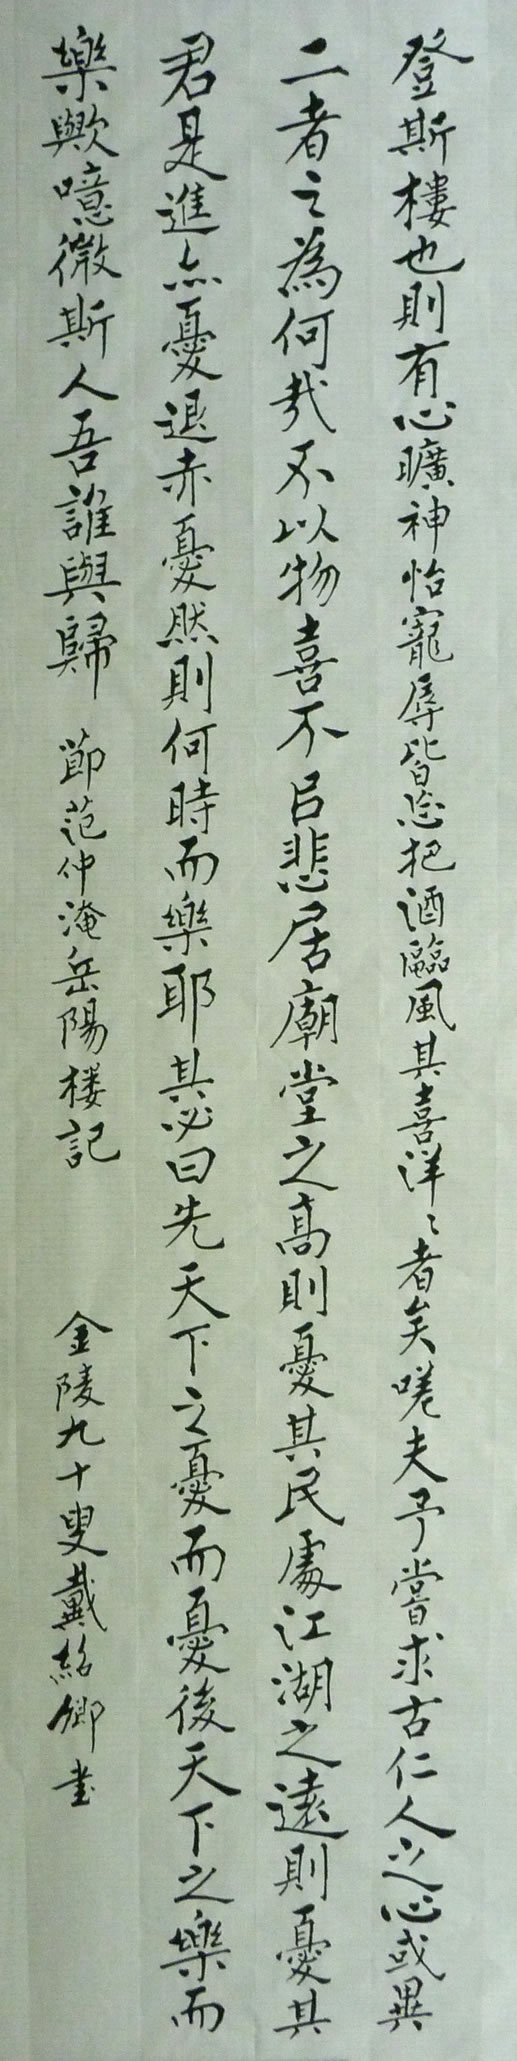 登斯樓也則有心曠神怡寵辱皆忘把酒臨風其喜洋〻者矣嗟夫予嘗求古仁人之心或異
二者之為何哉不以物喜不㠯悲居廟堂之高則憂其民處江湖之遠則憂其
君是進亦憂退亦憂然則何時而樂耶其必曰先天下之憂而憂後天下之樂而
樂歟噫微斯人吾誰與歸 節范仲淹岳陽楼記 金陵九十叟戴紹卿书